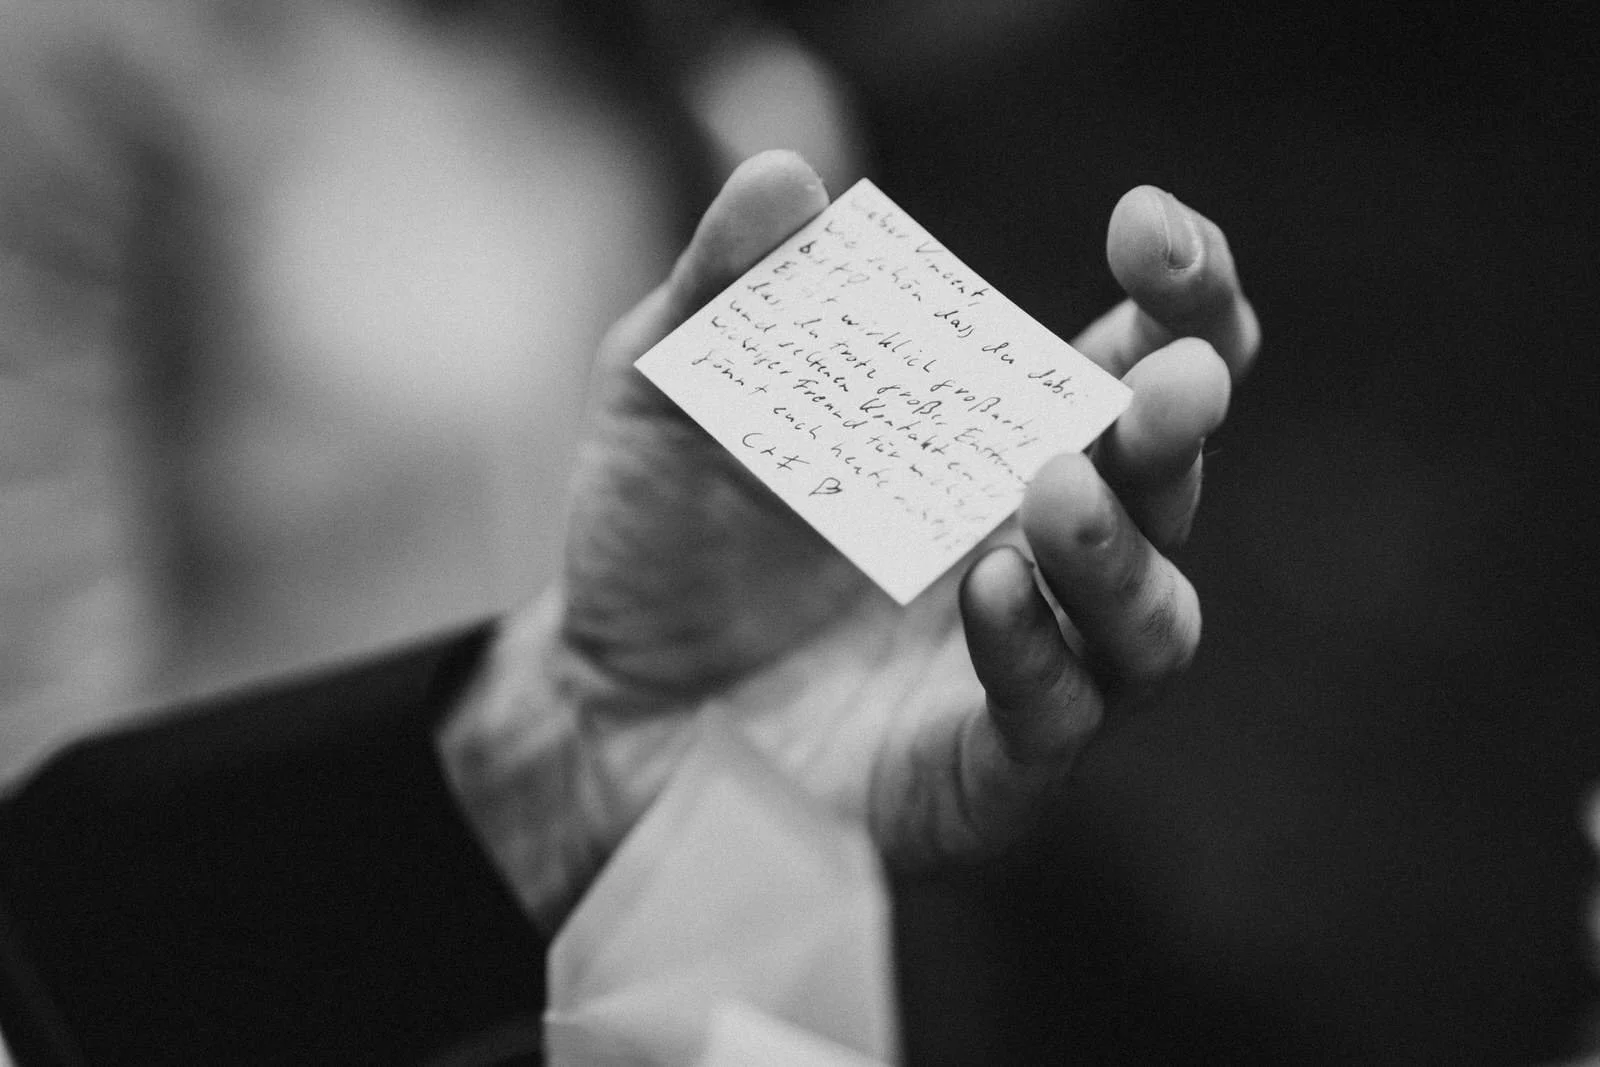 Lieber Vincent,
wie schön dass du dabei
bist!
Es ist wirklich großartig
das du trotz großer Entfernung
und seltenen Kontakt ein
wichtiger Freund für mich
gönnt euch heute
C+F ♡